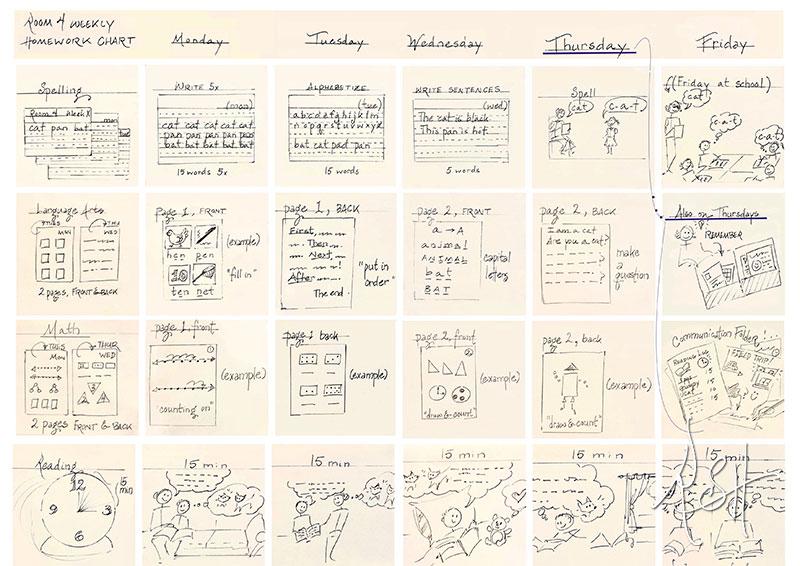 ROOM 4 WEEKLY
HOMEWORK CHART
Monday
Tuesday
Wednesday
Thursday
Friday
Spelling
Room 4 Week
mon
cat pan bat
WRITE 5x
(mon)
cat cat cat cat cat
pan pan pan pan pan
bat bat bat bat bat
15 words 5x
ALPHABETIZE
(tue)
abcdefghijklm
nopqrstuvwxyz
bat cat pad pan
15 words
WRITE SENTENCES
(wed)
The cat is black.
This pan is hot.
5 words
Spell
cat
c-a-t
(Friday at school)
cat
c-a-t
c-a-t
Language Arts
TUES
MON
THU
WED
2 pages, FRONT & BACK
Page 1, FRONT
hen pen
10
ten net
(example)
"fill in"
page 1, BACK
First,
Then
Next,
After
The end.
"put in
order"
page 2, FRONT
a → A
animal
ANIMAL
bat
BAT
capital
letters
page 2, BACK
I am a cat
Are you a cat?
?
?
?
make
a
question
Also on Thursdays
REMEMBER
Math
TUES
MON
THUR
WED
2 pages FRONT & BACK
page 1, front
"counting on"
(example)
page 1 back
(example)
page 2, front
"draw & count"
(example)
page 2, back
"draw & count"
(example)
Communication Folder
READING LOG
FIELD TRIP!
Reading
12
3
6
9
15
min
15 min
15 min
15 min
15 min
15 min